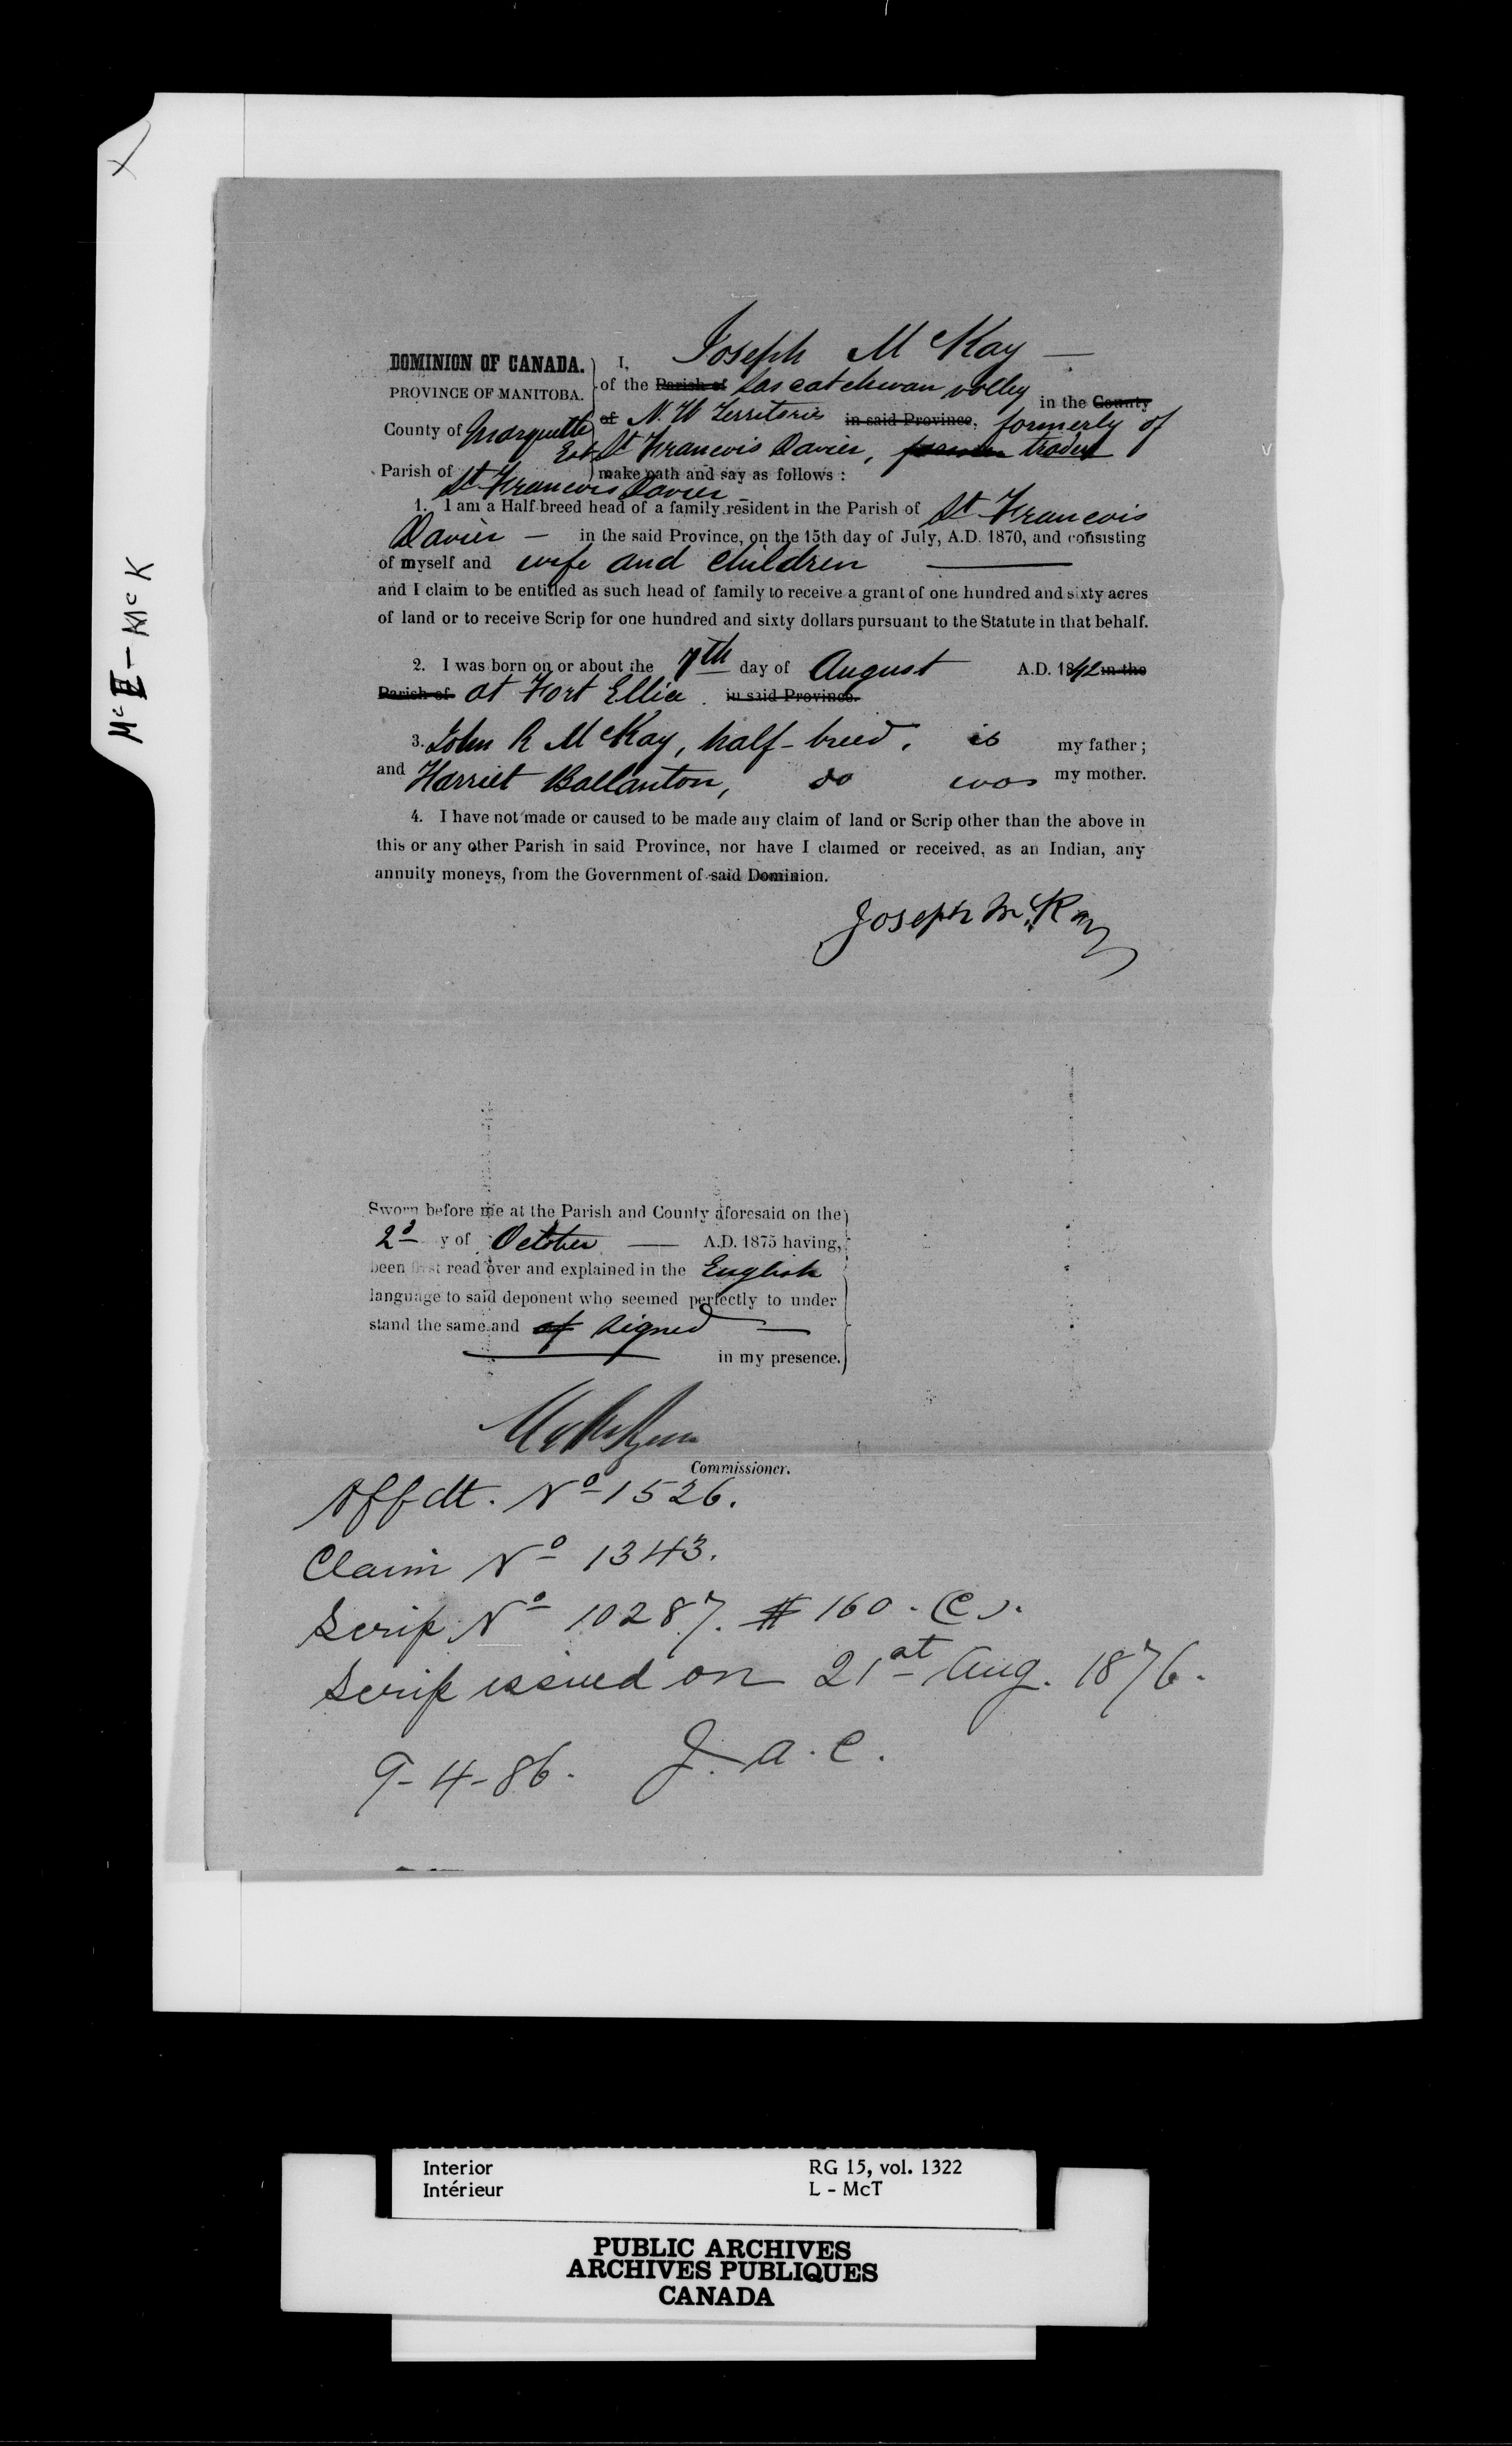 Mc II - Mc K
DOMINION OF CANADA.
PROVINCE OF MANITOBA.
County of Marquette
Est
Parish of
St Francois Xavier
I, Joseph McKay —
of the Parish of Sascatchwan volley in the County
of N. W Territories in said Province, formerly of
St Francois Xavier, farmer trader
make oath and say as follows :
1. I am a Half-breed head of a family resident in the Parish of St Francois
Xavier — in the said Province, on the 15th day of July, A.D. 1870, and consisting
of myself and wife and children ——
and I claim to be entitled as such head of family to receive a grant of one hundred and sixty acres
of land or to receive Scrip for one hundred and sixty dollars pursuant to the Statute in that behalf.
2. I was born on or about the 7th day of August A.D. 1842 in the
Parish of at Fort Ellice . in said Province.
3. John R McKay, half-breed, is my father ;
and Harriet Ballanton, do was my mother.
4. I have not made or caused to be made any claim of land or Scrip other than the above in
this or any other Parish in said Province, nor have I claimed or received, as an Indian, any
annuity moneys, from the Government of said Dominion.
Joseph McKay
Sworn before me at the Parish and County aforesaid on the
2d y of October — A.D. 1875 having,
been first read over and explained in the English
language to said deponent who seemed perfectly to under
stand the same and signed —
in my presence.
Commissioner.
Affdt. No 1526.
Claim No 1343.
Scrip No 10287. $160. (C).
Scrip issued on 21st Aug. 1876.
9-4-86. J. A. C.
Interior
Intérieur
RG 15, vol. 1322
L - McT
PUBLIC ARCHIVES
ARCHIVES PUBLIQUES
CANADA